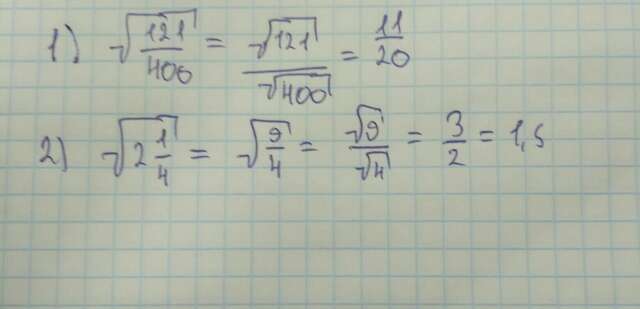 1) √(121/400) = √121/√400 = 11/20
2) √(2 1/4) = √(9/4) = √9/√4 = 3/2 = 1,5